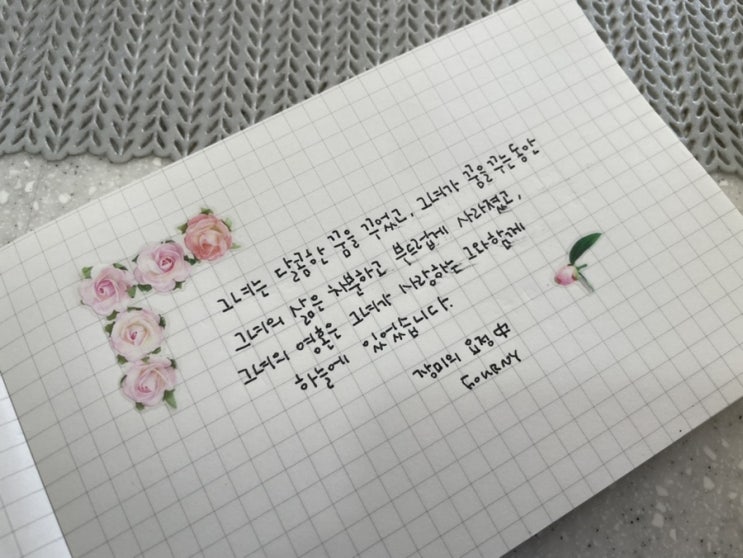 그녀는 달콤한 꿈을 꾸었고, 그녀가 꿈을 꾸는동안
그녀의 삶은 차분하고 부드럽게 사라졌고,
그녀의 영혼은 그녀가 사랑하는 그와함께
하늘에 있었습니다.
장미의 요정 中
GOURNY